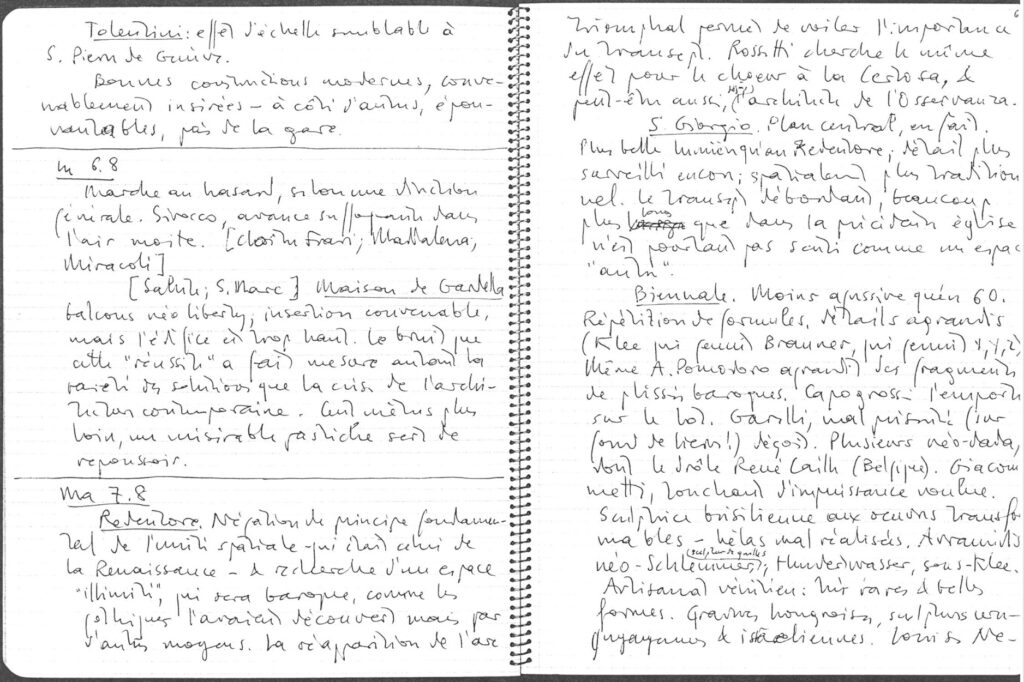 Tolentini: effet d'échelle semblable à
S. Pierre de Genève.
Bonnes constructions modernes, conve-
nablement insérées – à côté d'autres, épou-
vantables, près de la gare.
lu 6.8
Marche au hasard, selon une direction
générale. Sirocco, avance suffoquante dans
l'air moite. [Cloître Frari; Maddalena;
Miracoli]
[Salute; S. Marc] Maison de Gardella
balcons néo liberty; insertion convenable,
mais l'édifice est trop haut. Le bruit que
cette "réussite" a fait mesure autant la
rareté des solutions que la crise de l'archi-
tecture contemporaine. Cent mètres plus
loin, un misérable pastiche sert de
repoussoir.
ma 7.8
Redentore. Négation du principe fondamen-
tal de l'unité spatiale – qui était celui de
la Renaissance – & recherche d'un espace
"illimité", qui sera baroque, comme les
gothiques l'avaient découvert mais par
d'autres moyens. La réapparition de l'arc
6
triomphal permet de voiler l'importance
du transept. Rossetti cherche le même
effet pour le choeur à la Certosa, &
peut-être aussi, l'architecte de l'Osservanza.
S. Giorgio. Plan central, en fait.
Plus belle lumière qu'au Redentore; détail plus
surveillé encore; spatialement plus tradition
nel. Le transept débordant, beaucoup
plus long que dans la précédente église
n'est pourtant pas senti comme un espace
"autre".
Biennale. Moins agressive qu'en 60.
Répétition de formules, détails agrandis
(Klee qui fournit Brauner, qui fournit x, y, z)
Même A. Pomodoro agrandit des fragments
de plissés baroques. Capogrossi l'emporte
sur le lot. Garelli, mal présenté (sur
fond de lierre!) déçoit. Plusieurs néo-dada,
dont le drôle René Caille (Belgique). Giaco
metti, touchant d'impuissance voulue.
Sculptrice brésilienne aux oeuvres transfor
mables – hélas mal réalisées.
néo-Schlemmer (sculpture de quilles); Hundertwasser, sous-Klee.
Artisanat vénitien: très rares & belles
formes. Gravures hongroises, sculptures uru-
guayennes & israéliennes. Louise Ne-